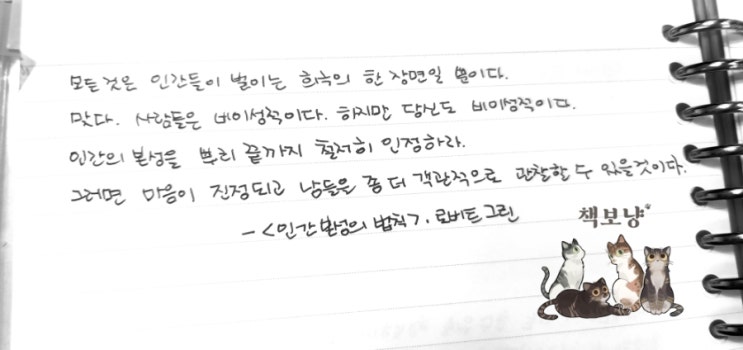 모든 것은 인간들이 벌이는 희극의 한 장면일 뿐이다.
맞다. 사람들은 비이성적이다. 하지만 당신도 비이성적이다.
인간의 본성을 뿌리 끝까지 철저히 인정하라.
그러면 마음이 진정되고 남들을 좀 더 객관적으로 관찰할 수 있을 것이다.
- <인간 본성의 법칙>. 로버트 그린
책보냥